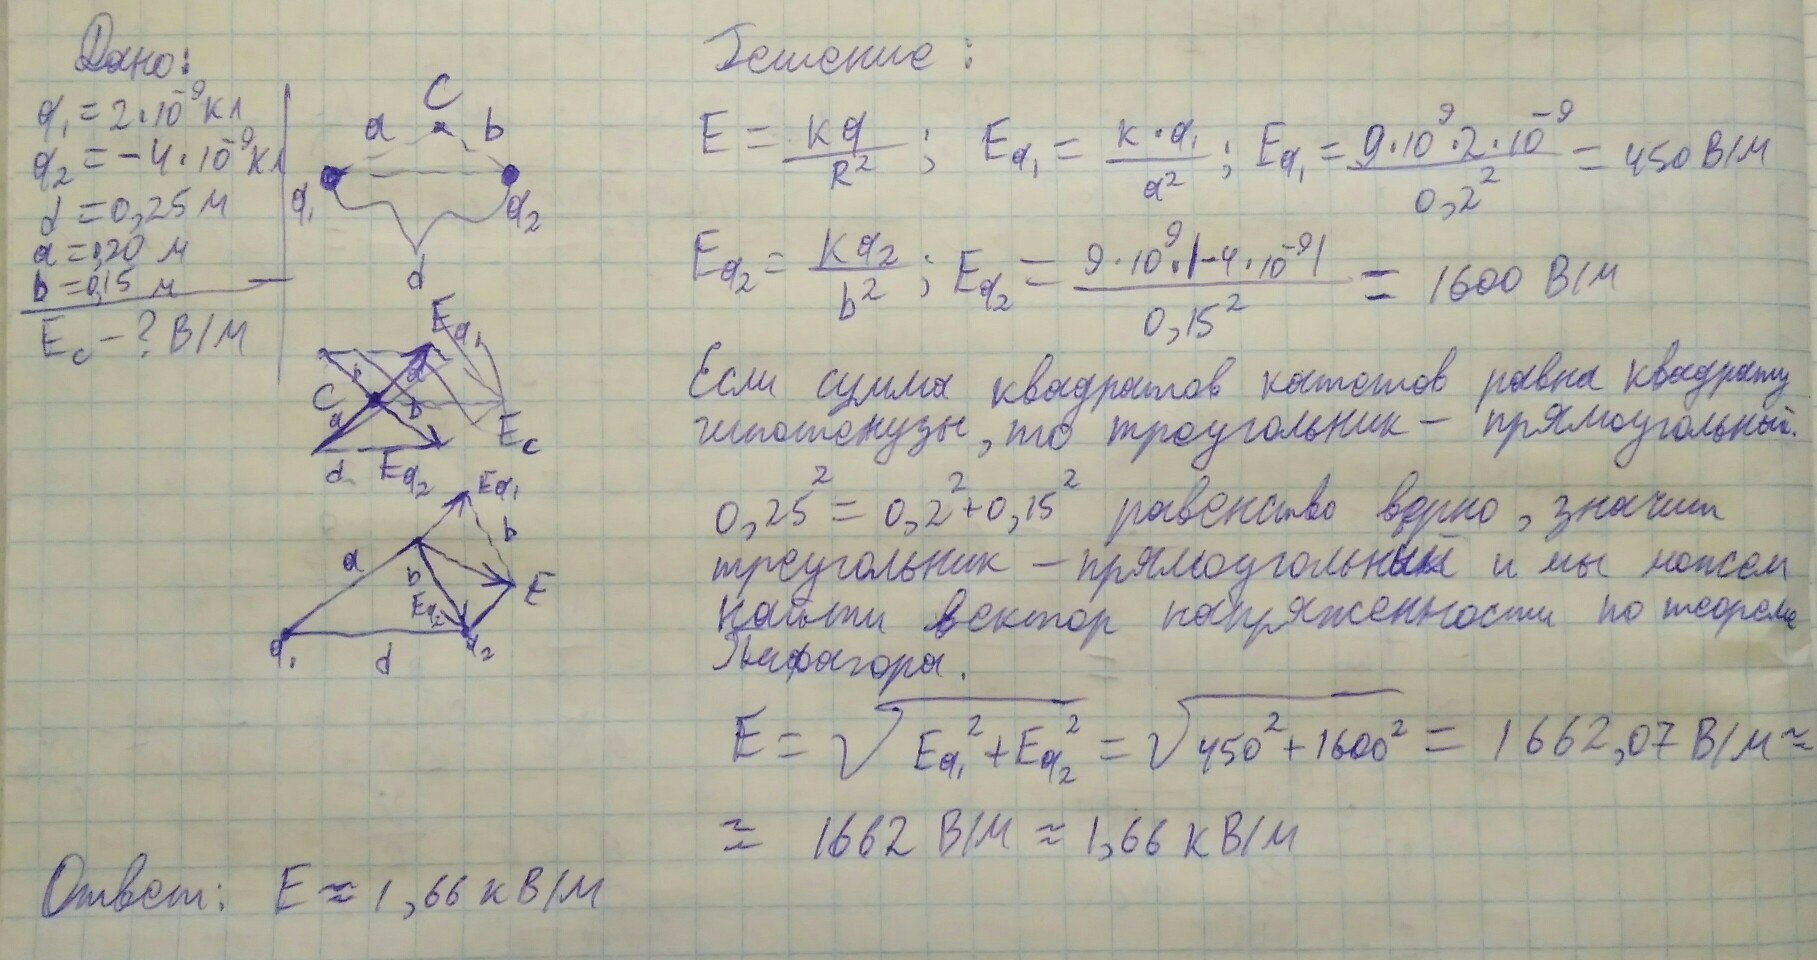 Дано:
q₁ = 2·10⁻⁹ Кл
q₂ = -4·10⁻⁹ Кл
d = 0,25 м
a = 0,20 м
b = 0,15 м
E_c - ? В/м
C
a b
q₁ q₂
d
E_q₁
C a b
a b
d E_q₂ E_c
E_q₁
a b b
E_q₂ E
q₁ d q₂
Решение:
E = kq/R²; E_q₁ = k·q₁/a²; E_q₁ = 9·10⁹·2·10⁻⁹/0,2² = 450 В/м
E_q₂ = kq₂/b²; E_q₂ = 9·10⁹·|-4·10⁻⁹|/0,15² = 1600 В/м
Если сумма квадратов катетов равна квадрату
гипотенузы, то треугольник – прямоугольный.
0,25² = 0,2² + 0,15² равенство верно, значит
треугольник – прямоугольный и мы можем
найти вектор напряженности по теореме
Пифагора.
E = √(E_q₁² + E_q₂²) = √(450² + 1600²) = 1662,07 В/м ≈
≈ 1662 В/м ≈ 1,66 кВ/м
Ответ: E ≈ 1,66 кВ/м